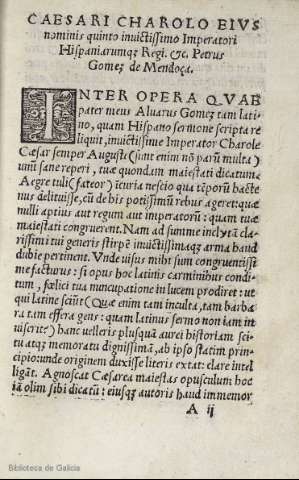 CAESARI CHAROLO EIVS
nominis quinto invictissimo Imperatori
Hispaniarumq; Regi. &c. Petrus
Gomez de Mendoça.
INTER OPERA QVAE
pater meus Aluarus Gomez tam lati-
no, quam Hispano sermone scripta re
liquit, invictissime Imperator Charole
Cæsar semper Auguste (sunt enim nō parū multa)
unū sane reperi, tuæ quondam maiestati dicatum.
Aegre tuli (fateor) īcuria nescio qua tēporū hacte
nus delituisse, cū de his potissimū rebus ageret: quæ
nulli aptius aut regum aut imperatorū: quam tuæ
maiestati congruerent. Nam ad summe inclytā cla-
rissimi tui generis stirpē invictissimaq; arma haud
dubie pertinent. Vnde uisus mihi sum congruentissi-
me facturus: si opus hoc latinis carminibus condi-
tum, fœlici tua nuncupatione in lucem prodiret: ut
qui latine sciūt (Quæ enim tam inculta, tam barba
ra tam effera gens: quam latinus sermo non iam in
uiserit?) hanc velleris plusquā aurei historiam sci-
tu atq; memoratu dignissimā, ab ipso statim prin-
cipio: unde originem duxisse literis extat: clare intel
ligāt. Agnoscat Cæsarea maiestas opusculum hoc
iā olim sibi dicatū: eiusq; autoris haud immemor
A ij
Biblioteca de Galicia